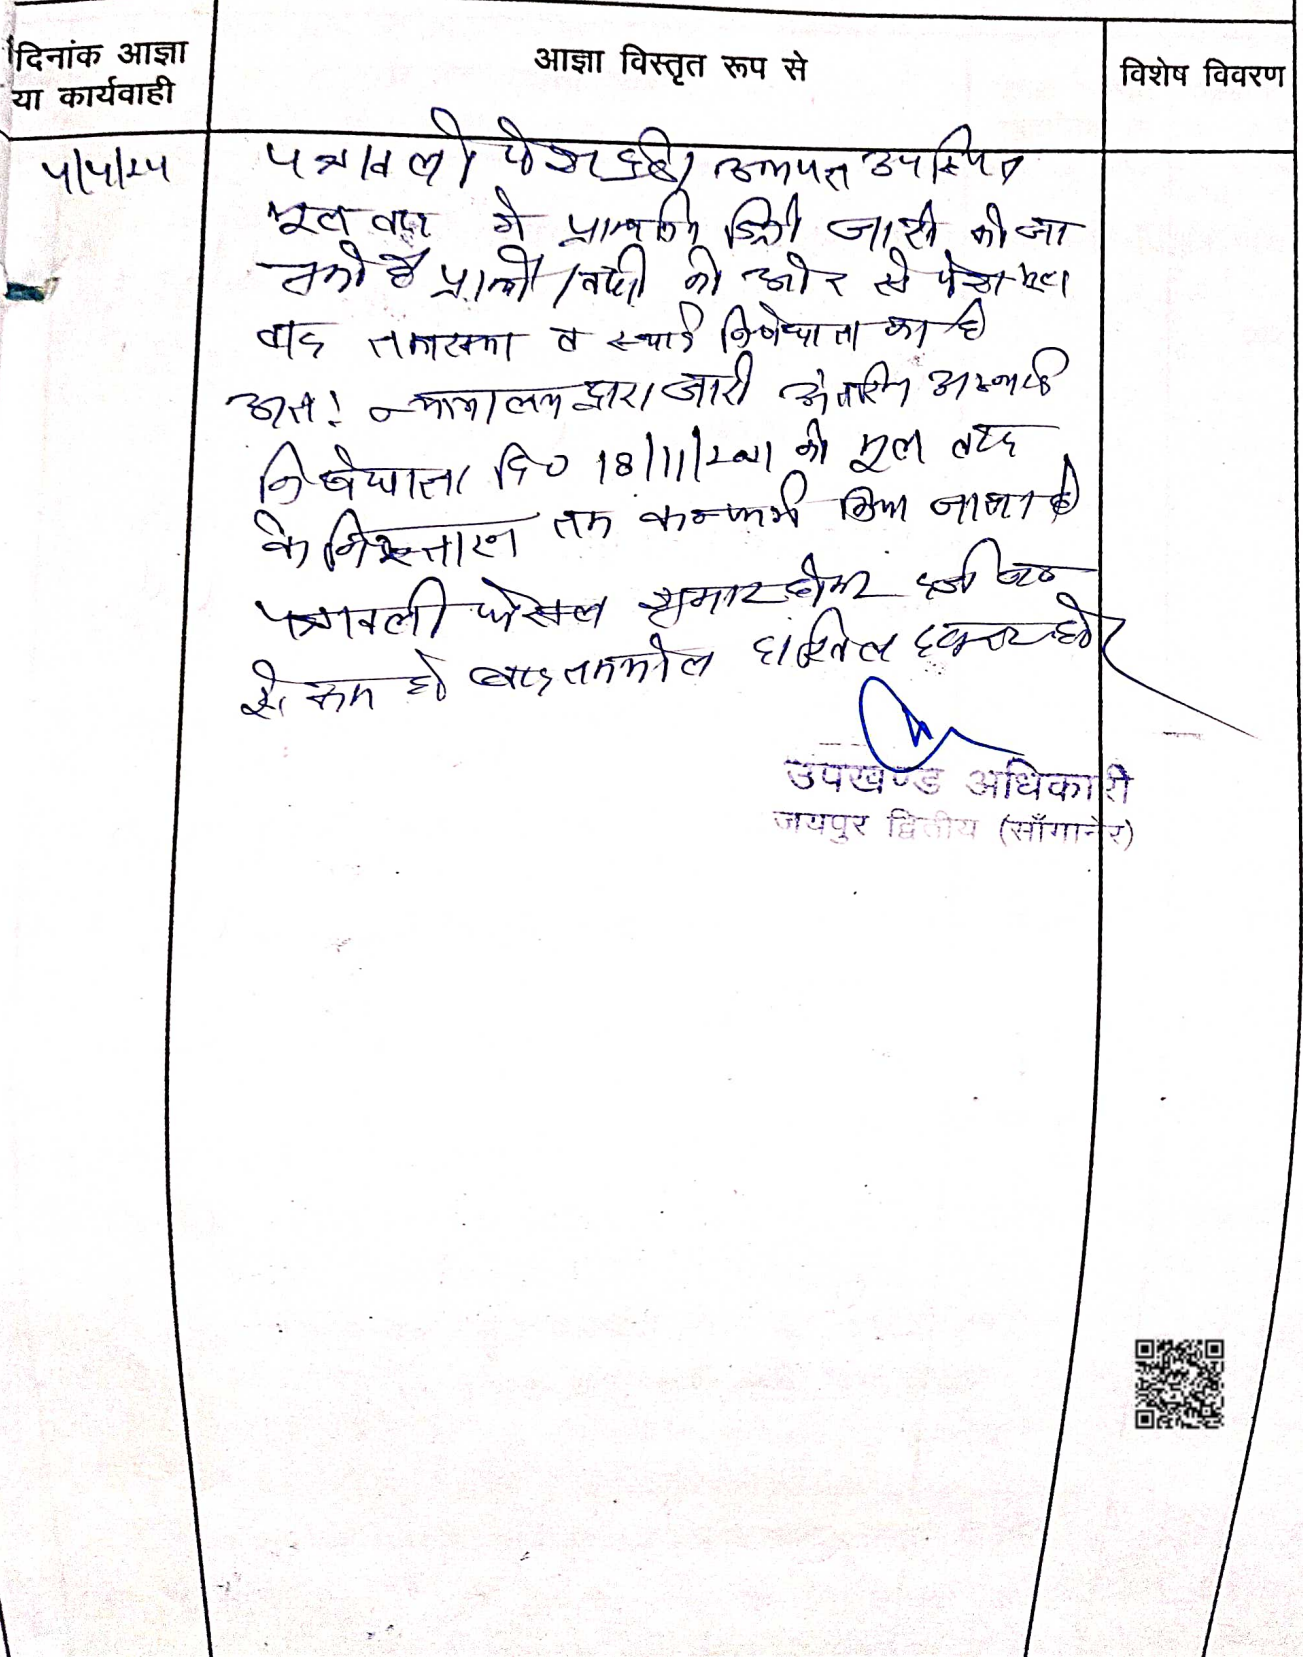 दिनांक आज्ञा या कार्यवाही
आज्ञा विस्तृत रूप से
विशेष विवरण
पत्रावली पेश हुई। उभयपक्ष उपस्थित
मूल वाद में प्रारम्भिक डिक्री जारी की जा
चुकी है प्रार्थी/वादी की ओर से पेश मूल
वाद तकासमा व स्थाई निषेधाज्ञा का है
अतः न्यायालय द्वारा जारी अंतरिम अस्थाई
निषेधाज्ञा दि० 18/11/2021 को मूल वाद
के निस्तारण तक कन्फर्म किया जाता है
पत्रावली फैसल शुमार होकर दर्ज नम्बर
से कम हो बाद तकमील दाखिल दफ्तर हो
उपखण्ड अधिकारी
जयपुर द्वितीय (साँगानेर)